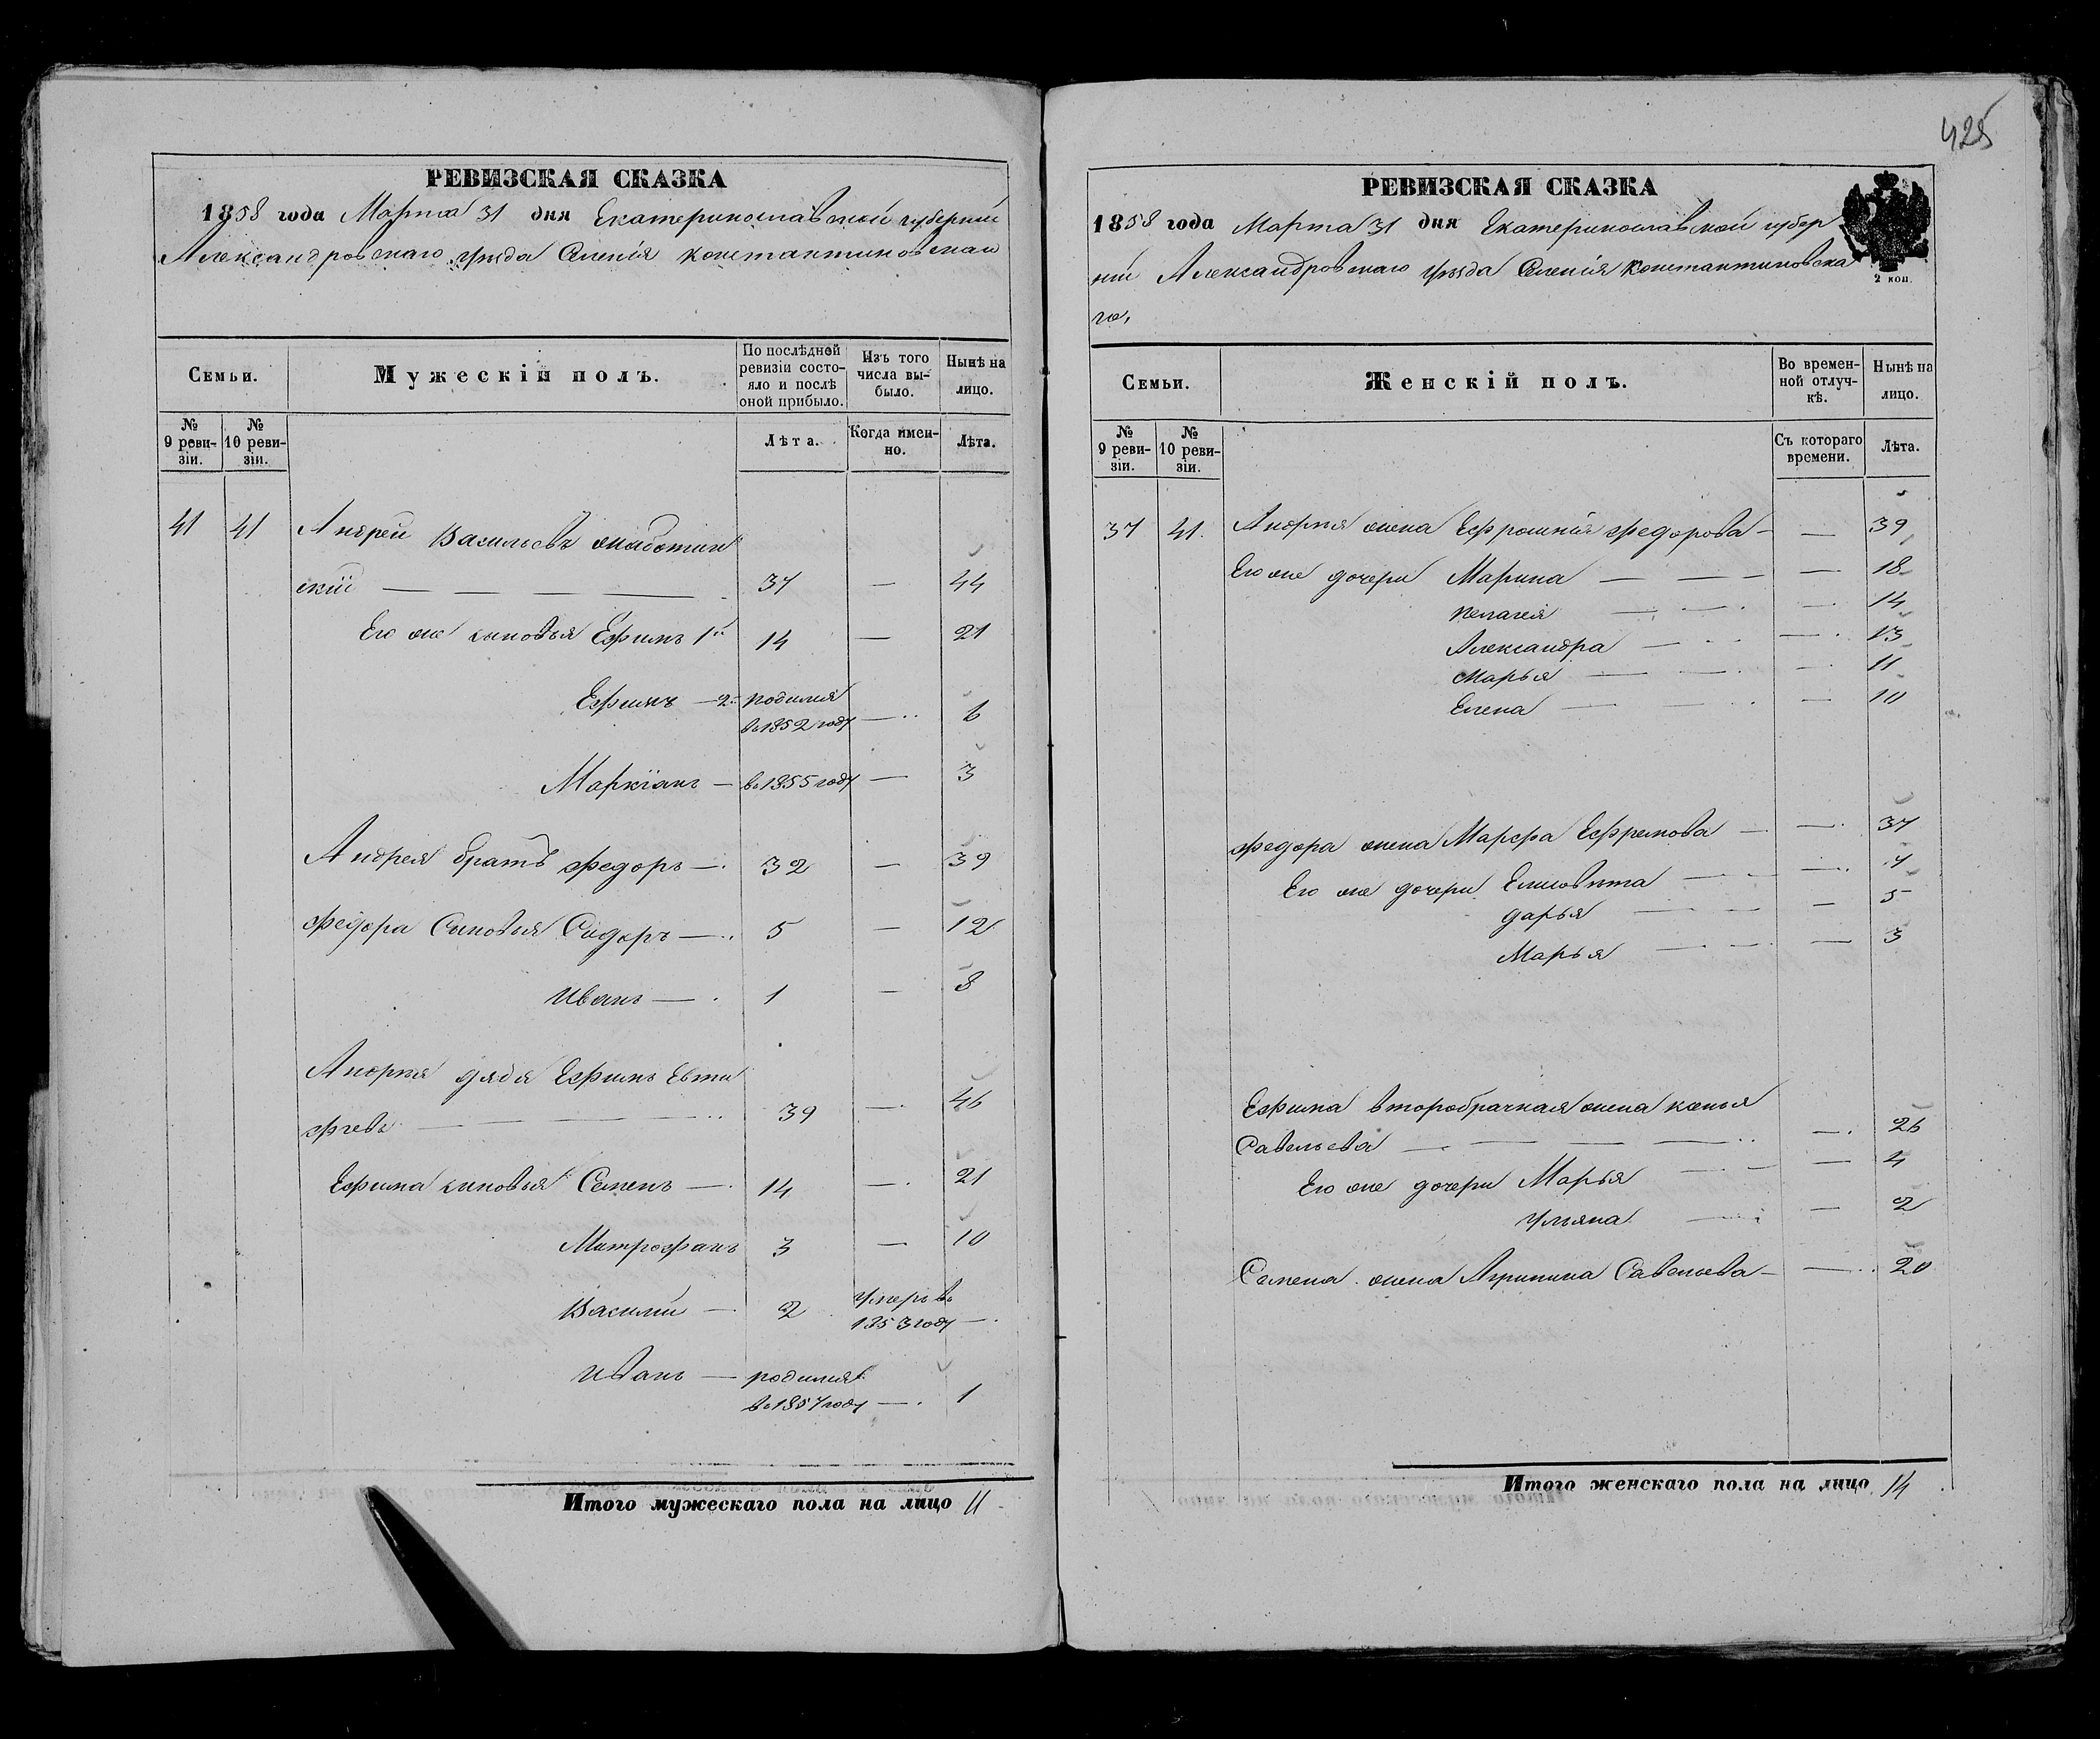 425
РЕВИЗСКАЯ СКАЗКА
1858 года Марта 31 дня Екатеринославской губернии
Александровскаго уѣзда Селенія Константиновскаго
Семьи.
Мужескій полъ.
По послѣдней ревизіи состояло и послѣ оной прибыло.
Изъ того числа выбыло.
Нынѣ на лицо.
№ 9 ревизіи.
№ 10 ревизіи.
Лѣта.
Когда именно.
Лѣта.
41 41 Андрей Васильевъ
скій — 37 — 44
Его же сыновья Ефимъ 1й 14 — 21
Ефимъ — 2й родился
въ 1852 году — 6
Маркіанъ — въ 1855 году — 3
Андрея братъ Федоръ — 32 — 39
Федора Сыновья Сидоръ — 5 — 12
Иванъ — 1 — 8
Андрея дядя Ефимъ Евти
фѣевъ — 39 — 46
Ефима сыновья Семенъ — 14 — 21
Митрофанъ 3 — 10
Василій — 2 Умеръ въ
1853 году —
Иванъ — родился
въ 1857 году — 1
Итого мужескаго пола на лицо 11
РЕВИЗСКАЯ СКАЗКА
1858 года Марта 31 дня Екатеринославской губер
ніи Александровскаго уѣзда Селенія Константиновска
го,
2 коп.
Семьи.
Женскій полъ.
Во временной отлучкѣ.
Нынѣ на лицо.
№ 9 ревизіи.
№ 10 ревизіи.
Съ котораго времени.
Лѣта.
37 41. Андрея жена Ефросинія Федорова — — 39
Его же дочери Марина — — 18
Пелагея — — 14
Александра — — 13
Марья — — 11
Елена — — 10
Федора жена Марфа Ефремова — — 37
Его же дочери Елисовѣта — — 7
Дарья — — 5
Марья — — 3
Ефима второбрачная жена
Савельева — — 26
Его же дочери Марья — — 4
Ульяна — — 2
Семена жена Агрипина Савельева — — 20
Итого женскаго пола на лицо 14